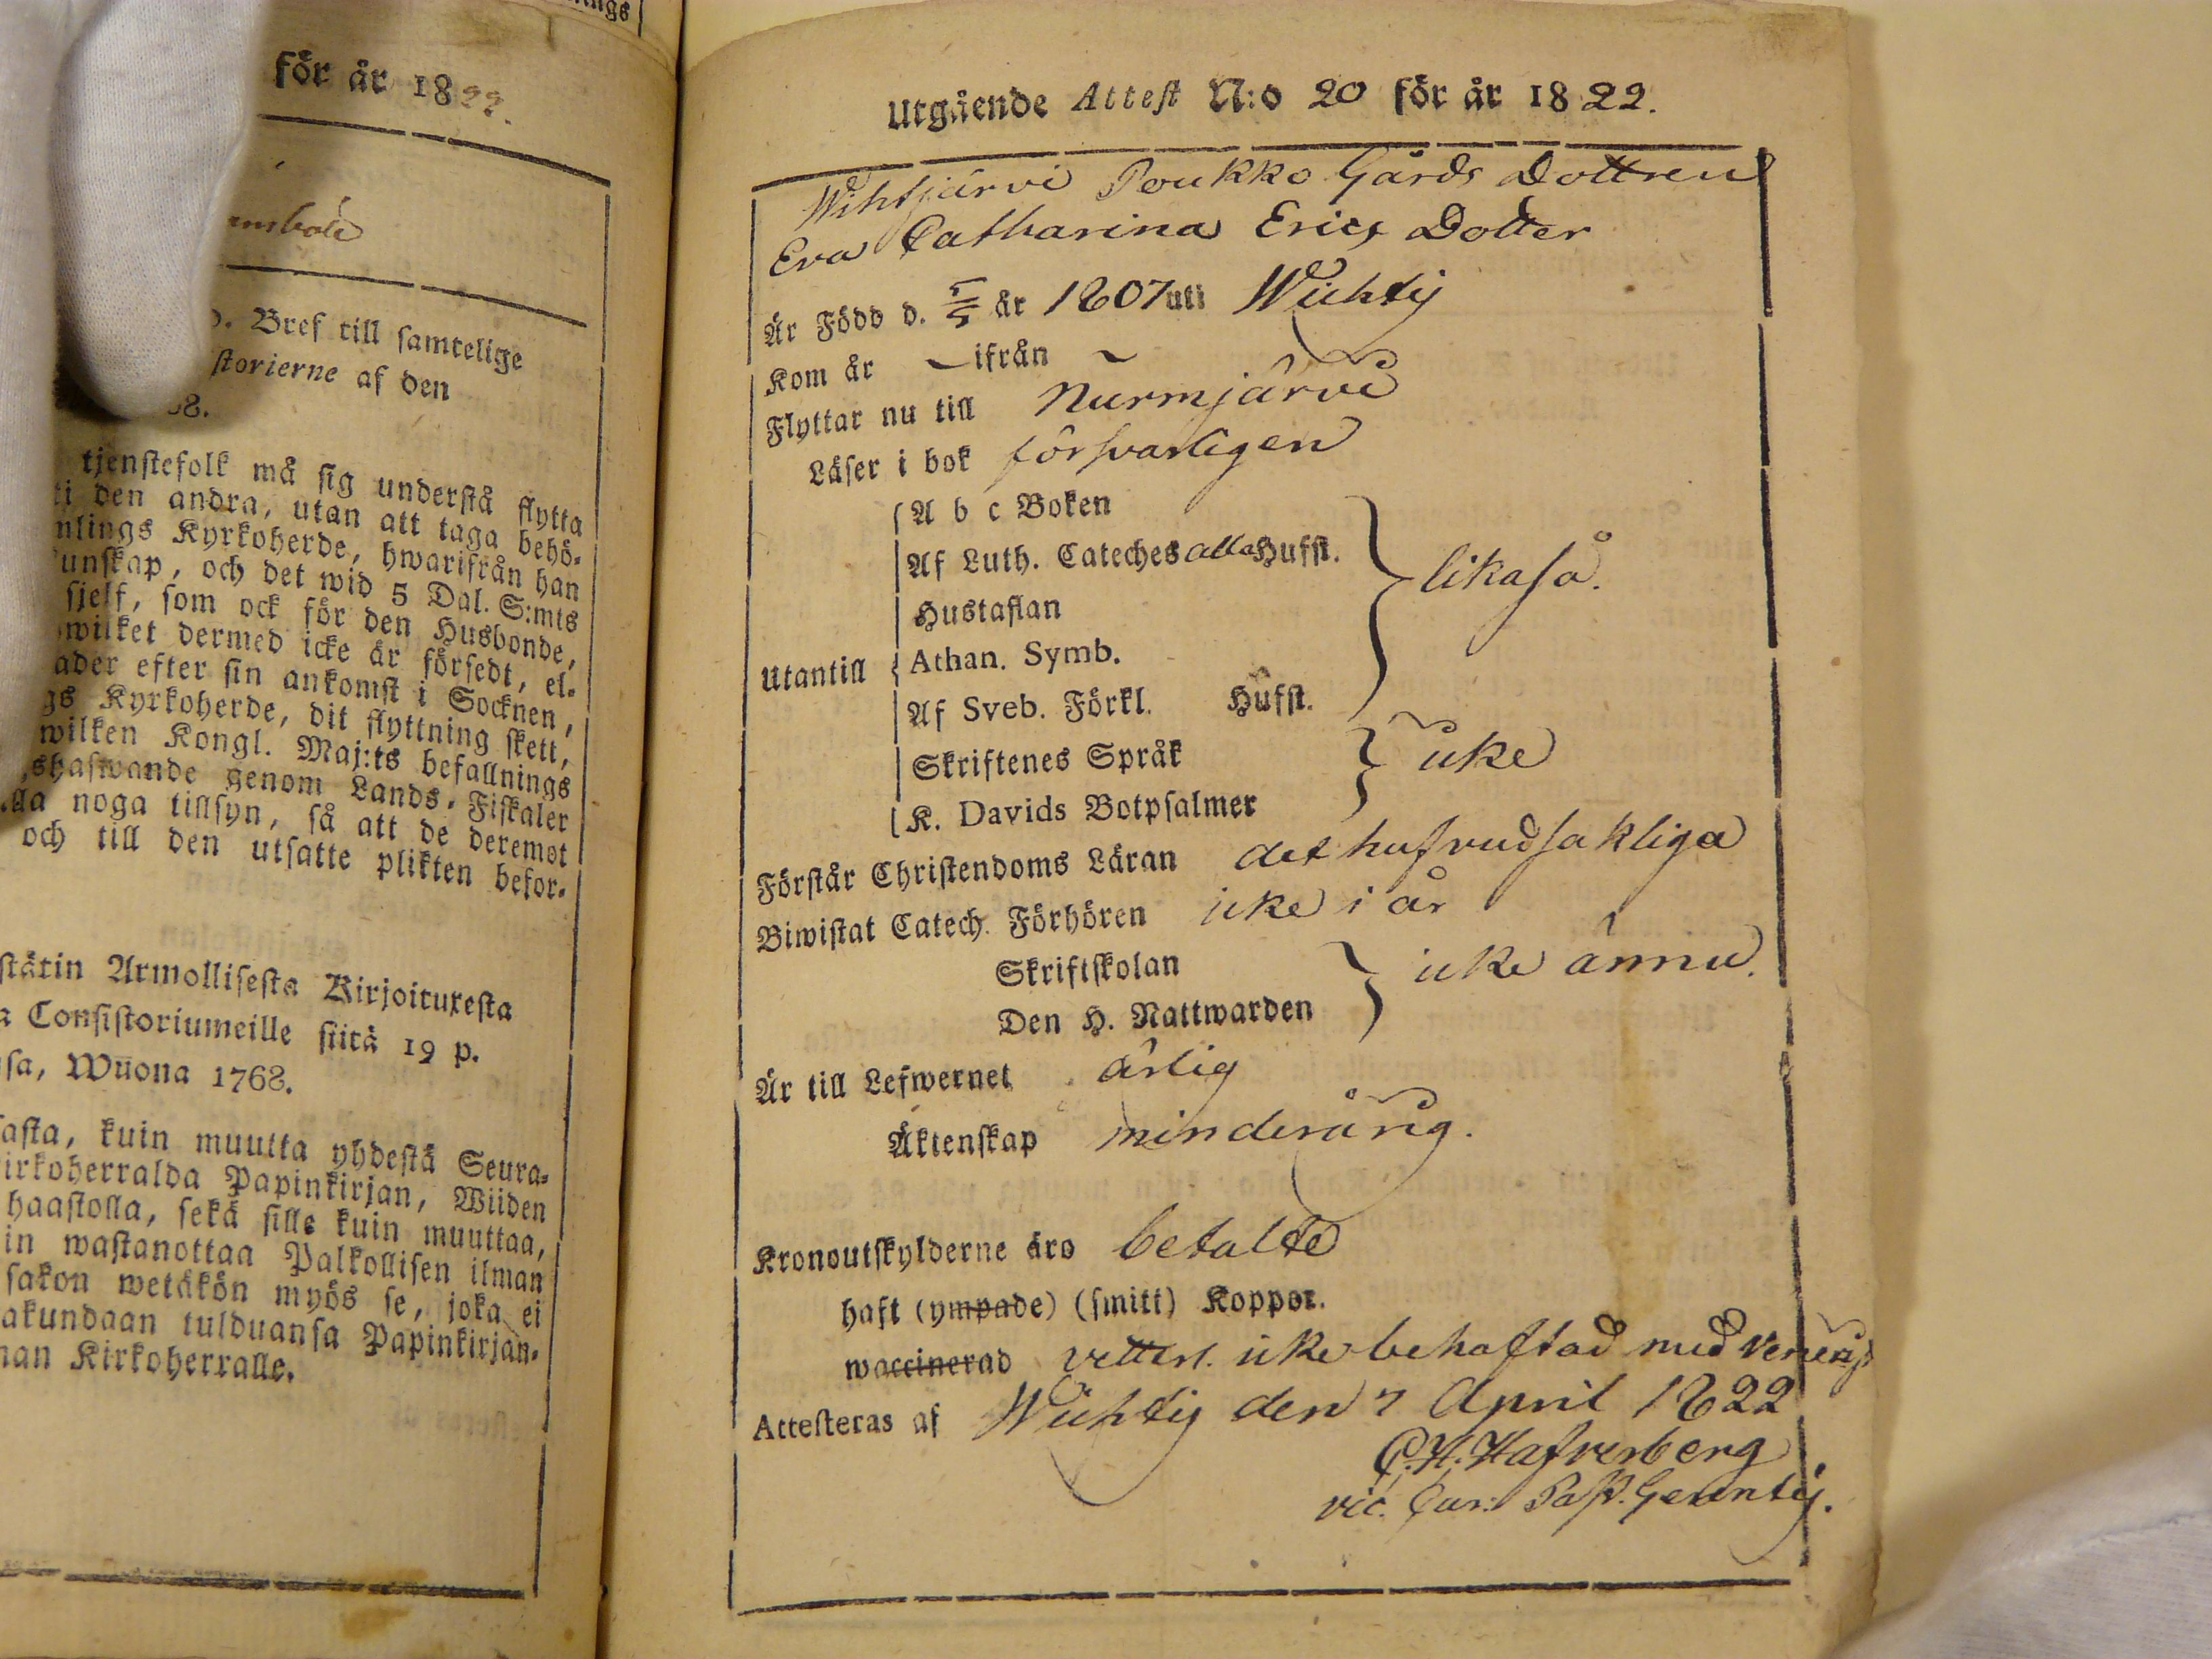 ings
för år 1822.
ambole
D. Bref till samtelige
storierne af den
68.
tjenstefolk må sig understå flytta
ti den andra, utan att taga behö-
nlings Kyrkoherde, hwarifrån han
unskap, och det wid 5 Dal. S:mts
sjelf, som ock för den Husbonde,
wilket dermed icke är försedt, el-
ader efter sin ankomst i Socknen,
gs Kyrkoherde, dit flyttning skett,
wilken Kongl. Maj:ts befallnings
shafwande genom Lands-Fiskaler
lla noga tillsyn, så att de deremot
och till den utsatte plikten befor-
stätin Armollisesta Kirjoituxesta
a Consistoriumeille siitä 19 p.
sa, Wuona 1768.
asta, kuin muutta yhdestä Seura-
irkoherralda Papinkirjan, Wiiden
haastolla, sekä sille kuin muuttaa,
in wastanottaa Palkollisen ilman
sakon wetäkön myös se, joka ei
akundaan tulduansa Papinkirjan-
nan Kirkoherralle.
Utgående Attest N:o 20 för år 1822.
Wihtjärvi Poukko Gårds Dottren
Eva Catharina Erics Dotter
Är Född d. år 1807 uti Wichtij
Kom år – ifrån –
Flyttar nu till Nurmjärvi
Läser i bok försvarligen
A b c Boken
Af Luth. Cateches alla Hufst.
likaså.
Hustaflan
Utantill Athan. Symb.
Af Sveb. Förkl. Hufst.
Skriftenes Språk icke
K. Davids Botpsalmer
Förstår Christendoms Läran det hufvudsakliga
Biwistat Catech. Förhören icke i år
Skriftskolan icke ännu.
Den H. Nattwarden
Är till Lefwernet ärlig
Äktenskap minderårig.
Kronoutskylderne äro betalte
haft (ympade) (smitt) Koppor.
waccinerad vetterl. icke behäftad med Venerisk
Attesteras af Wichtij den 7 April 1822
C. H. Hafverberg
vic. Cur. Past. Gent